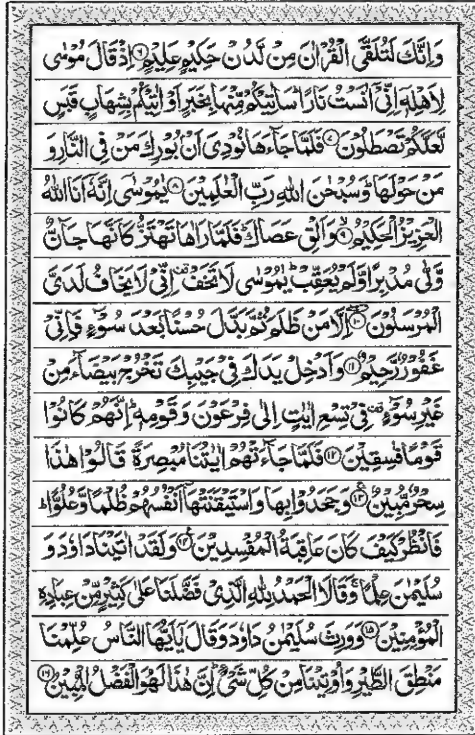 وَاِنَّكَ لَتُلَقَّى الْقُرْاٰنَ مِنْ لَّدُنْ حَكِيْمٍ عَلِيْمٍ ۝۶ اِذْ قَالَ مُوْسٰى
لِاَهْلِهٖۤ اِنِّيْۤ اٰنَسْتُ نَارًا ؕ سَاٰتِيْكُمْ مِّنْهَا بِخَبَرٍ اَوْ اٰتِيْكُمْ بِشِهَابٍ قَبَسٍ
لَّعَلَّكُمْ تَصْطَلُوْنَ ۝۷ فَلَمَّا جَآءَهَا نُوْدِيَ اَنْۢ بُوْرِكَ مَنْ فِى النَّارِ وَ
مَنْ حَوْلَهَا ؕ وَسُبْحٰنَ اللّٰهِ رَبِّ الْعٰلَمِيْنَ ۝۸ يٰمُوْسٰۤى اِنَّهٗۤ اَنَا اللّٰهُ
الْعَزِيْزُ الْحَكِيْمُ ۝۹ وَاَلْقِ عَصَاكَ ؕ فَلَمَّا رَاٰهَا تَهْتَزُّ كَاَنَّهَا جَآنٌّ
وَّلّٰى مُدْبِرًا وَّلَمْ يُعَقِّبْ ؕ يٰمُوْسٰى لَا تَخَفْ اِنِّيْ لَا يَخَافُ لَدَيَّ
الْمُرْسَلُوْنَ ۝۱۰ اِلَّا مَنْ ظَلَمَ ثُمَّ بَدَّلَ حُسْنًۢا بَعْدَ سُوْٓءٍ فَاِنِّيْ
غَفُوْرٌ رَّحِيْمٌ ۝۱۱ وَاَدْخِلْ يَدَكَ فِيْ جَيْبِكَ تَخْرُجْ بَيْضَآءَ مِنْ
غَيْرِ سُوْٓءٍ فِيْ تِسْعِ اٰيٰتٍ اِلٰى فِرْعَوْنَ وَقَوْمِهٖ ؕ اِنَّهُمْ كَانُوْا
قَوْمًا فٰسِقِيْنَ ۝۱۲ فَلَمَّا جَآءَتْهُمْ اٰيٰتُنَا مُبْصِرَةً قَالُوْا هٰذَا
سِحْرٌ مُّبِيْنٌ ۝۱۳ وَجَحَدُوْا بِهَا وَاسْتَيْقَنَتْهَاۤ اَنْفُسُهُمْ ظُلْمًا وَّعُلُوًّا ؕ
فَانْظُرْ كَيْفَ كَانَ عَاقِبَةُ الْمُفْسِدِيْنَ ۝۱۴ وَلَقَدْ اٰتَيْنَا دَاوٗدَ وَ
سُلَيْمٰنَ عِلْمًا ۚ وَقَالَا الْحَمْدُ لِلّٰهِ الَّذِيْ فَضَّلَنَا عَلٰى كَثِيْرٍ مِّنْ عِبَادِهِ
الْمُؤْمِنِيْنَ ۝۱۵ وَوَرِثَ سُلَيْمٰنُ دَاوٗدَ وَقَالَ يٰۤاَيُّهَا النَّاسُ عُلِّمْنَا
مَنْطِقَ الطَّيْرِ وَاُوْتِيْنَا مِنْ كُلِّ شَيْءٍ ؕ اِنَّ هٰذَا لَهُوَ الْفَضْلُ الْمُبِيْنُ ۝۱۶